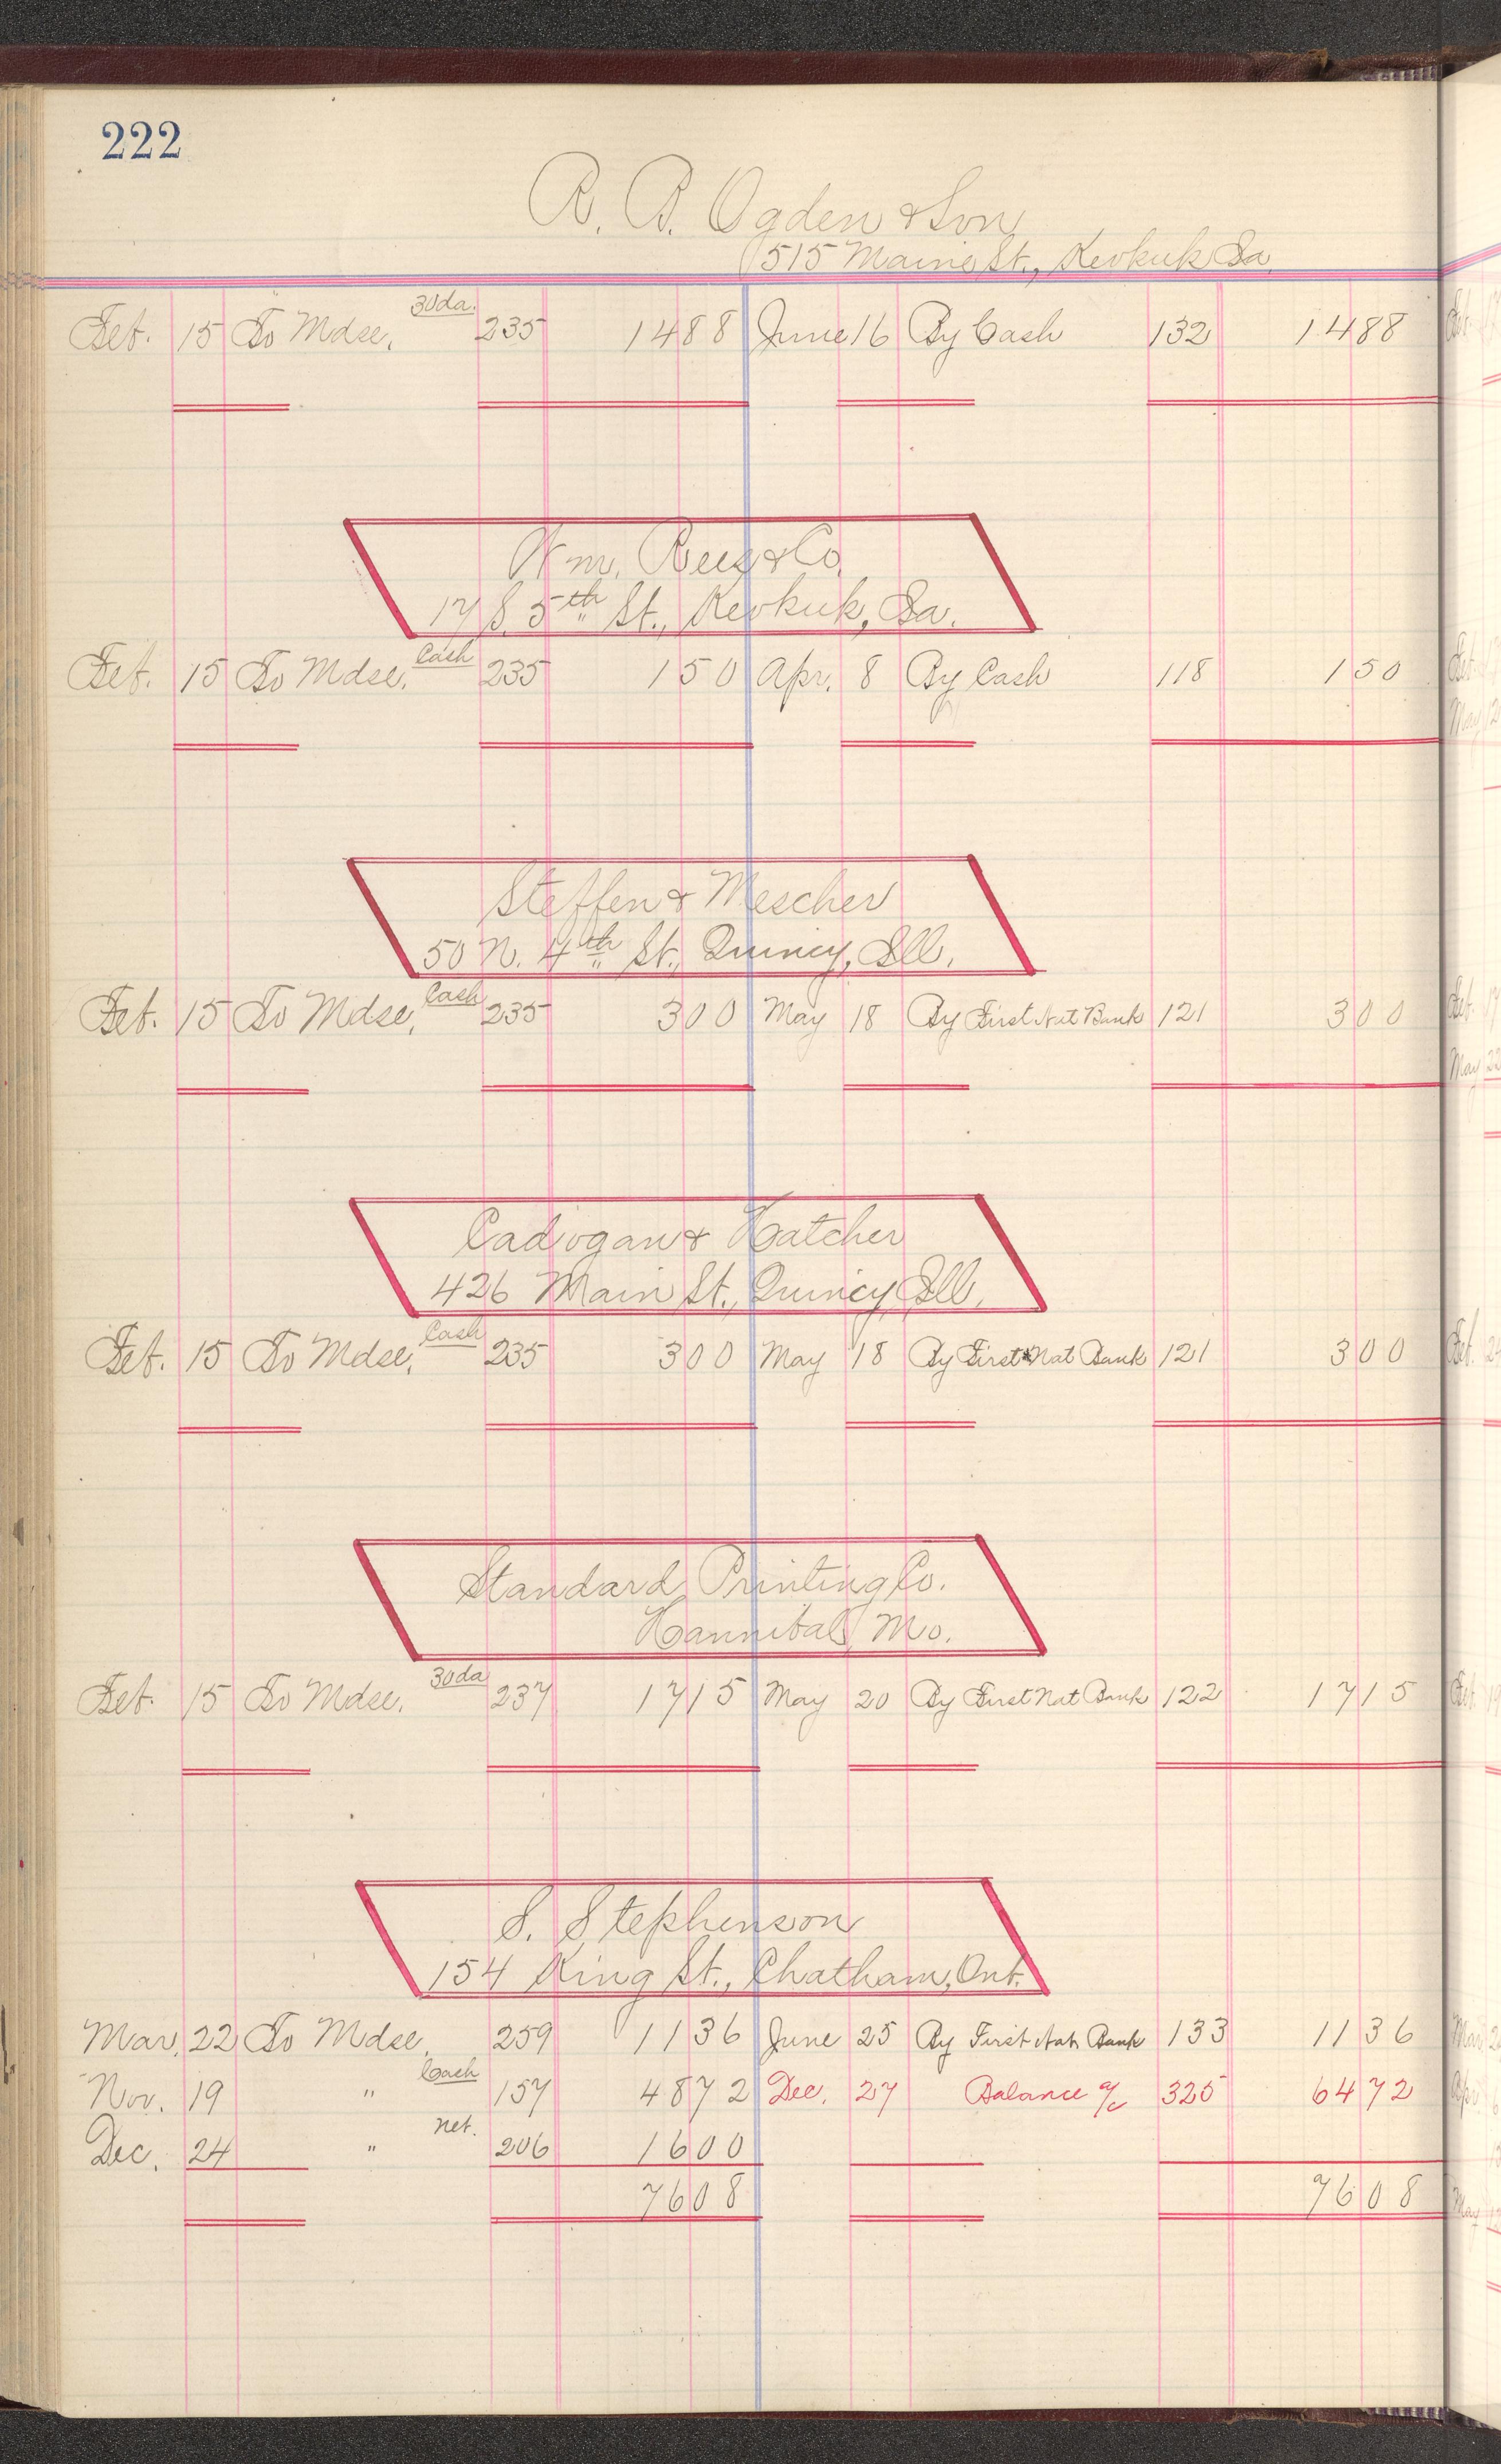 222
R. B. Ogden & Son
515 Maine St., Keokuk Ia.
Feb. 15 To Mdse. 30da. 235 1488 June 16 By Cash 132 1488
Wm. Rees & Co.
17 S. 5th St., Keokuk, Ia.
Feb. 15 To Mdse. Cash 235 150 Apr. 8 By Cash 118 150
Steffen & Mescher
50 N. 4th St., Quincy, Ill.
Feb. 15 To Mdse. Cash 235 300 May 18 By First Nat Bank 121 300
Cadogan & Hatcher
426 Main St., Quincy, Ill.
Feb. 15 To Mdse. Cash 235 300 May 18 By First Nat Bank 121 300
Standard Printing Co.
Hannibal, Mo.
Feb. 15 To Mdse. 30da 237 1715 May 20 By First Nat Bank 122 1715
S. Stephenson
154 King St., Chatham, Ont.
Mar. 22 To Mdse. 259 1136 June 25 By First Nat. Bank 133 1136
Nov. 19 " Cash 157 4872 Dec. 27 Balance a/c 325 6472
Dec. 24 " net. 206 1600
7608 7608